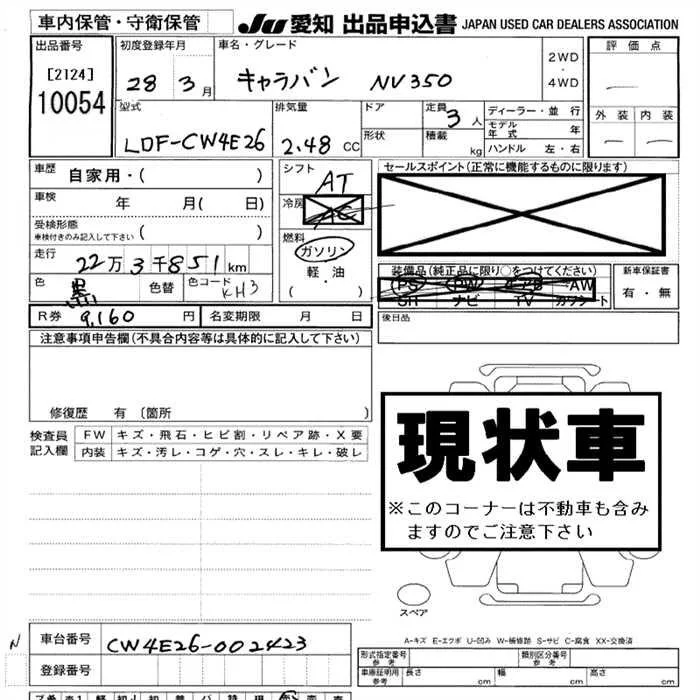 車内保管・守衛保管
JU 愛知 出品申込書 JAPAN USED CAR DEALERS ASSOCIATION
出品番号
[2124]
10054
初度登録年月
28 3月
車名・グレード
キャラバン NV350
2WD
・
4WD
評価点
外装 内装
型式
LDF-CW4E26
排気量
2.48 CC
ドア
形状
定員 3人
積載 kg
ディーラー・並行
モデル年式 年
ハンドル 左・右
車歴 自家用・( )
車検 年 月( 日)
受検形態
車検付きのみ記入して下さい ( )
走行 22万3千851km
色 黒 色替 色コード KH3
シフト AT
冷房 AC
燃料
ガソリン
軽・油
( ・ )
セールスポイント(正常に機能するものに限ります)
装備品(純正品に限り○をつけてください)
PS PW AW
SH ナビ TV カワシート
新車保証書
有・無
R券 9,160 円 名変期限 月 日
後日品
注意事項申告欄(不具合内容等は具体的に記入して下さい)
修復歴 有〔箇所 〕
検査員記入欄
FW キズ・飛石・ヒビ割・リペア跡・X要
内装 キズ・汚レ・コゲ・穴・スレ・キレ・破レ
現状車
※このコーナーは不動車も含み
ますのでご注意下さい
スペア
A-キズ E-エクボ U-凹み W-補修跡 S-サビ C-腐食 XX-交換済
N
車台番号 CW4E26-002423
登録番号
形式指定番号 参考
類別区分番号 参考
車庫証明用 参考 長さ cm 幅 cm 高さ cm